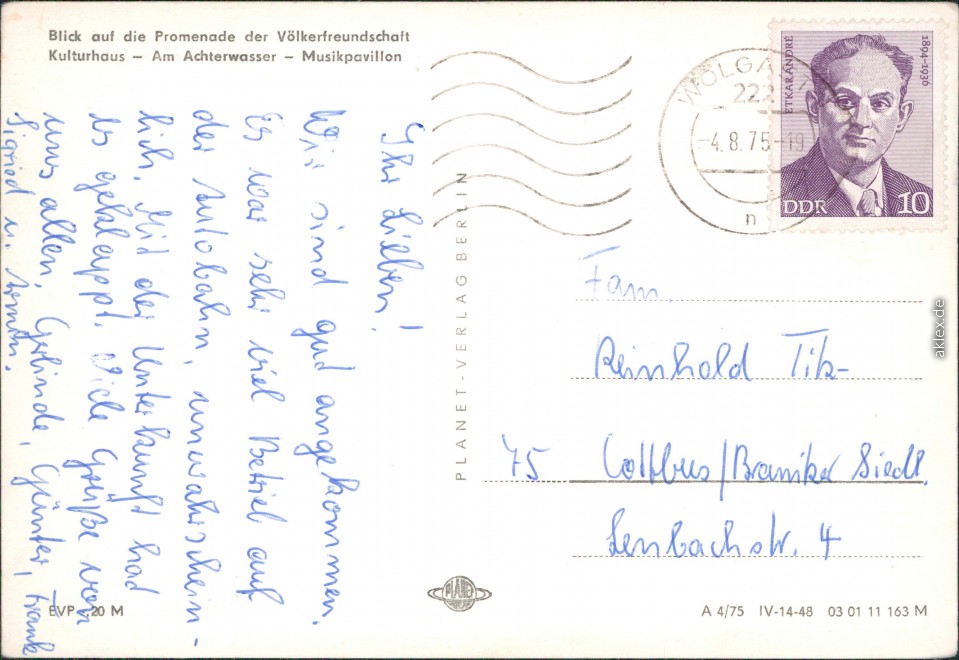 Blick auf die Promenade der Völkerfreundschaft
Kulturhaus – Am Achterwasser – Musikpavillon
Ihr Lieben!
Wir sind gut angekommen.
Es war sehr viel Betrieb auf
der Autobahn, unwahrschein-
lich. Mit der Unterkunft hat
es geklappt. Viele Grüße von
uns allen, Gerlinde, Günter, Frank
Sigried u. Armin.
EVP -20 M
PLANET-VERLAG BERLIN
PLANET
WOLGAST
222
-4.8.75-19
n
ETKAR ANDRÉ
1894-1936
DDR 10
Fam.
Reinhold
75 Cottbus/Braniker Siedl.
Lenbachstr. 4
A 4/75 IV-14-48 03 01 11 163 M
aklex.de